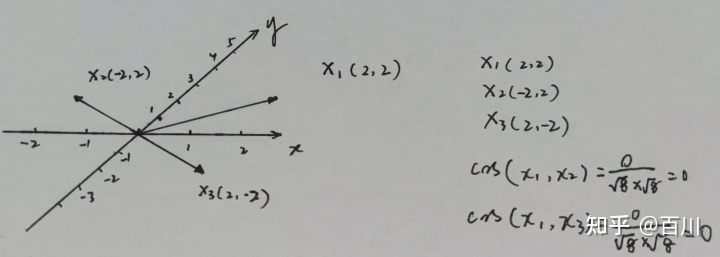 y
5
4
3
2
1
X₂(-2,2)
X₁(2,2)
-2
-1
1
2
x
-1
-2
-3
X₃(2,-2)
X₁(2,2)
X₂(-2,2)
X₃(2,-2)
cos(X₁,X₂)=0/(√8×√8)=0
cos(X₁,X₃)=0/(√8×√8)=0
知乎 @百川